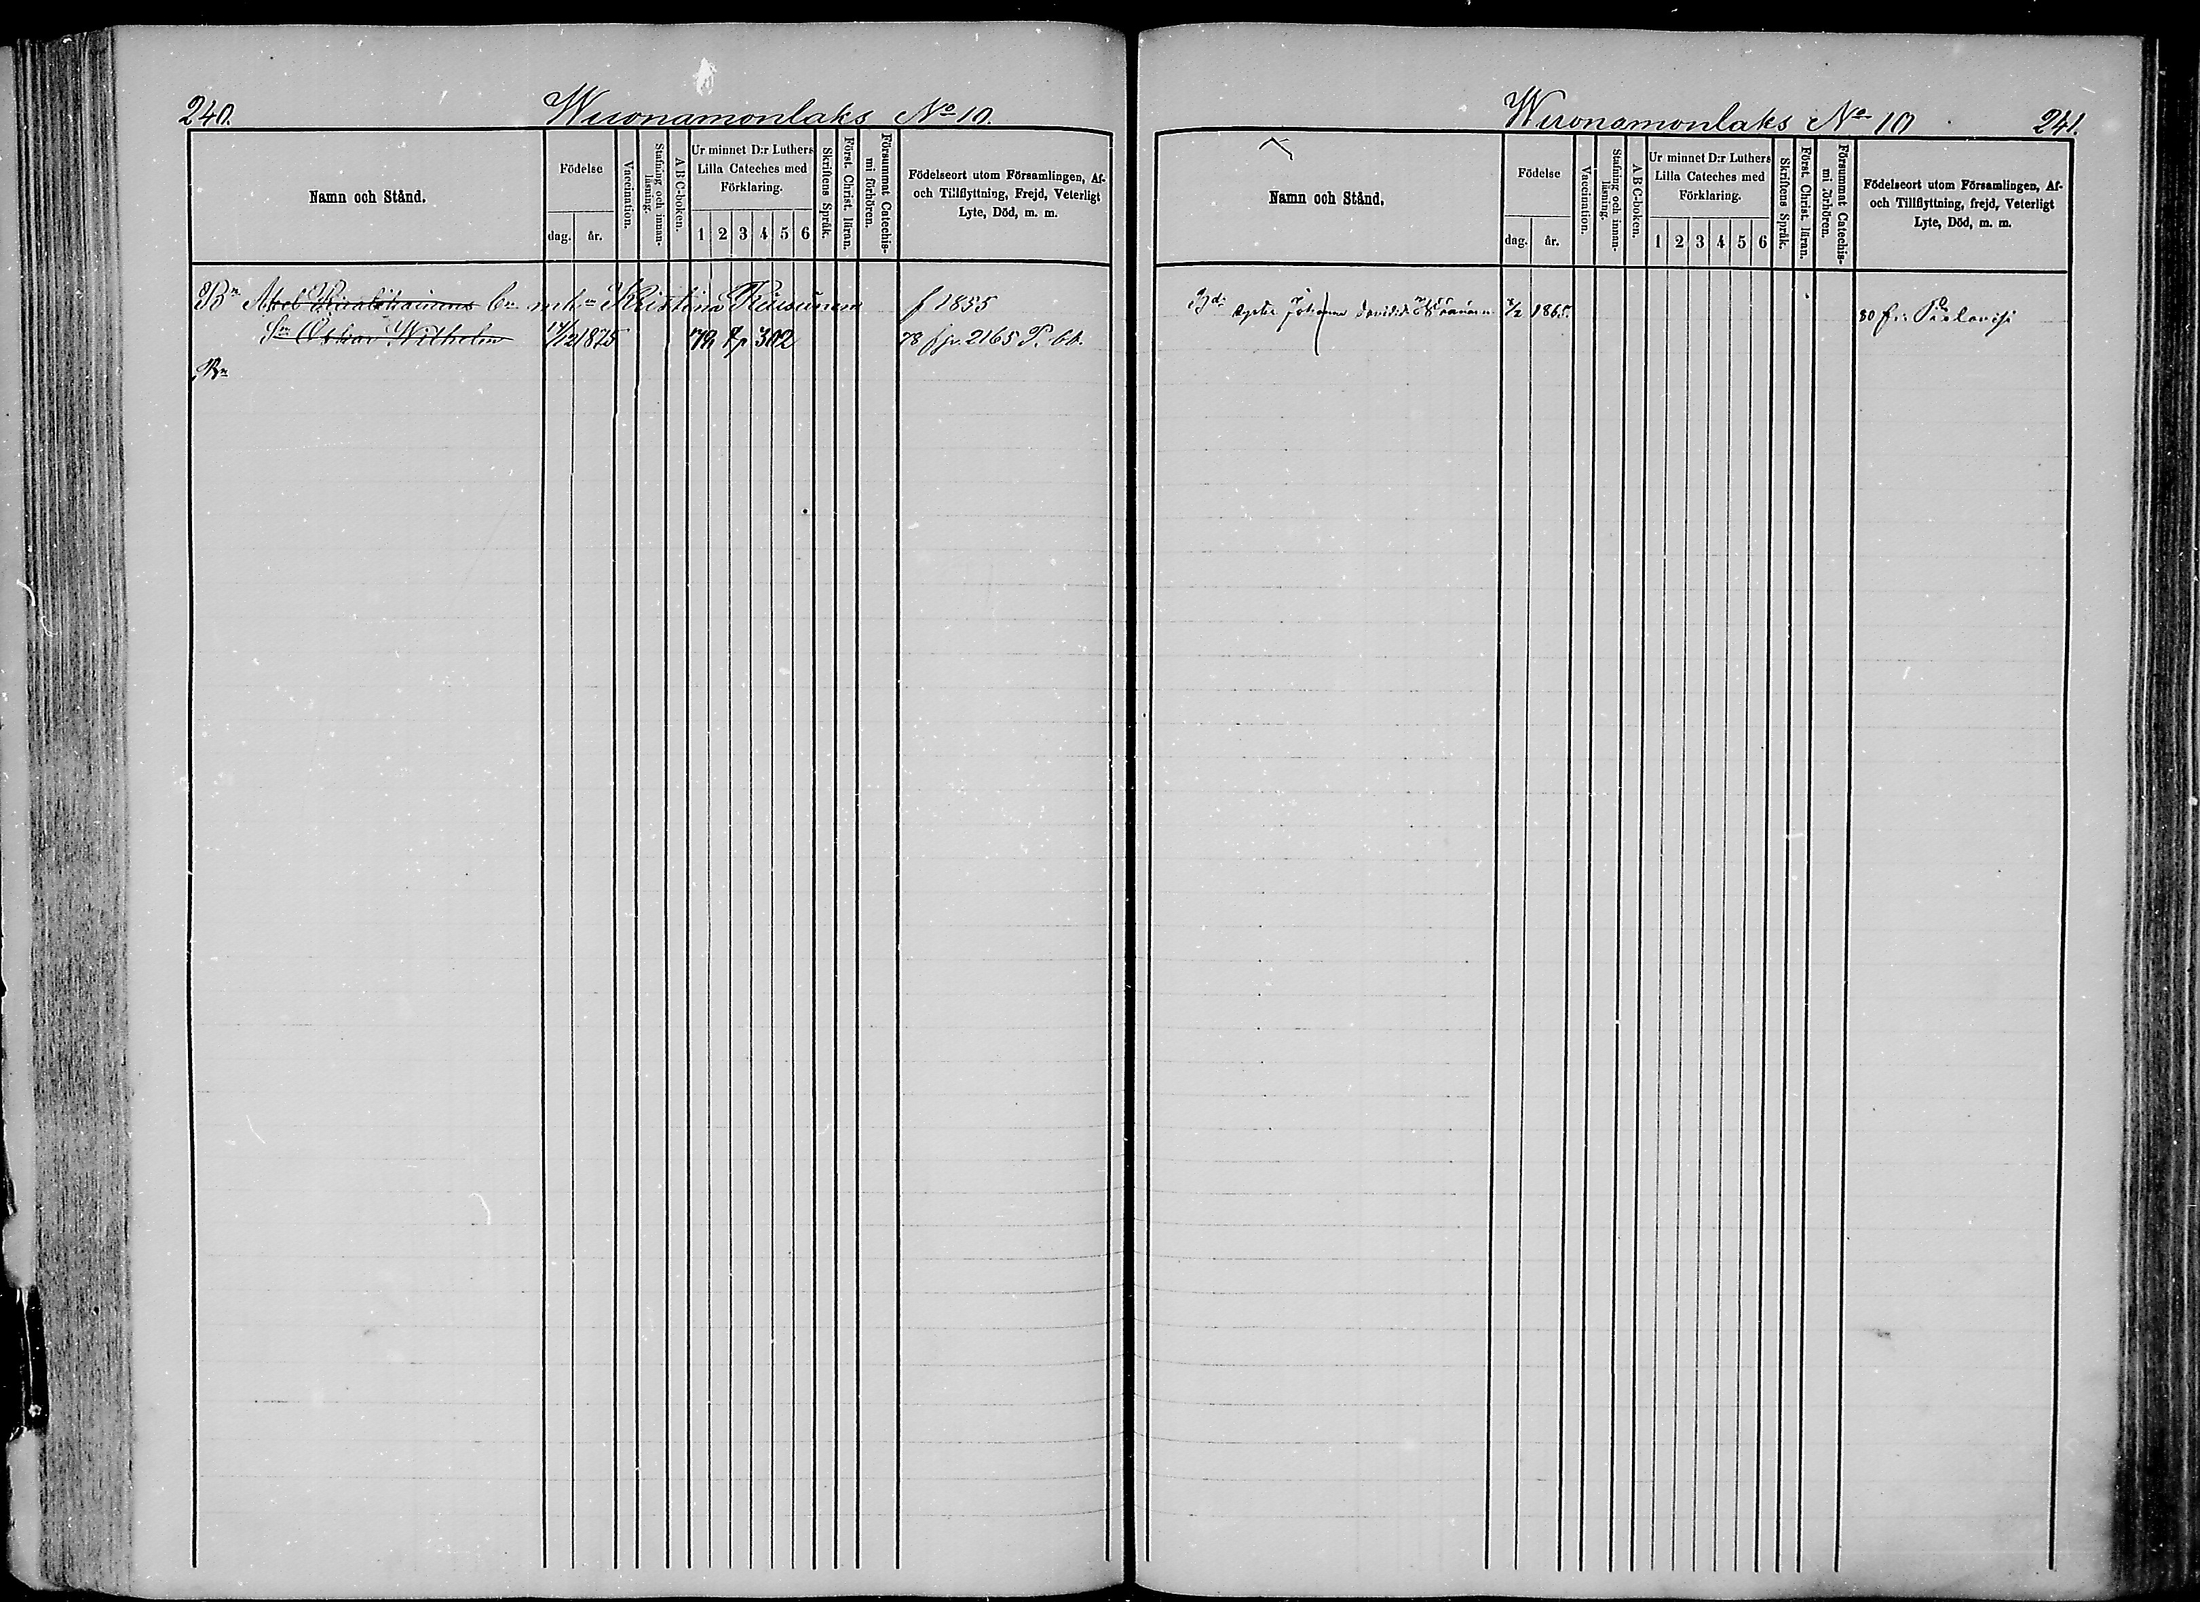 240.
Wuonamonlaks No 10.
Namn och Stånd.
Födelse
dag.
år.
Vaccination.
Stafning och innan-
läsning.
A B C-boken.
Ur minnet D:r Luthers
Lilla Cateches med
Förklaring.
1 2 3 4 5 6
Skriftens Språk.
Först. Christ. läran.
Försummat Catechis-
mi förhören.
Födelseort utom Församlingen, Af-
och Tillflyttning, Frejd, Veterligt
Lyte, Död, m. m.
Bn Abel Kristina f 1855
Sn Oskar Wilhelm 14/12 1875 79 fp 302 78 2165 P. bb.
Bn
Wuonamonlaks No 10
241.
Namn och Stånd.
Födelse
dag.
år.
Vaccination.
Stafning och innan-
läsning.
A B C-boken.
Ur minnet D:r Luthers
Lilla Cateches med
Förklaring.
1 2 3 4 5 6
Skriftens Språk.
Först. Christ. läran.
Försummat Catechis-
mi förhören.
Födelseort utom Församlingen, Af-
och Tillflyttning, frejd, Veterligt
Lyte, Död, m. m.
Johanna 1865 80 fr. Pielavesi